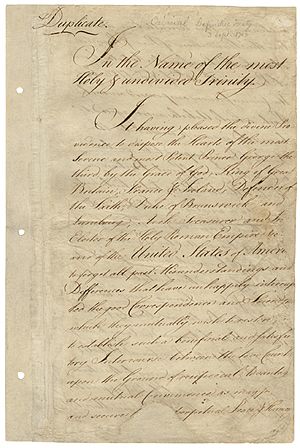 Duplicate.
Original Definitive Treaty
3 Sept. 1783
In the Name of the most
Holy & undivided Trinity.
It having pleased the Divine Pro
vidence to dispose the Hearts of the most
Serene and most Potent Prince George the
third, by the Grace of God, King of Great
Britain, France & Ireland, Defender of
the Faith, Duke of Brunswick and
Lunebourg, Arch Treasurer, and Prince
Elector of the Holy Roman Empire &c.
and of the United States of America
to forget all past Misunderstandings and
Differences that have unhappily interrup
ted the good Correspondence and Friendship
which they mutually wish to restore;
to establish such a beneficial and satisfac
tory Intercourse between the two Countries
upon the Ground of reciprocal
and mutual Convenience as may
and secure perpetual Peace &